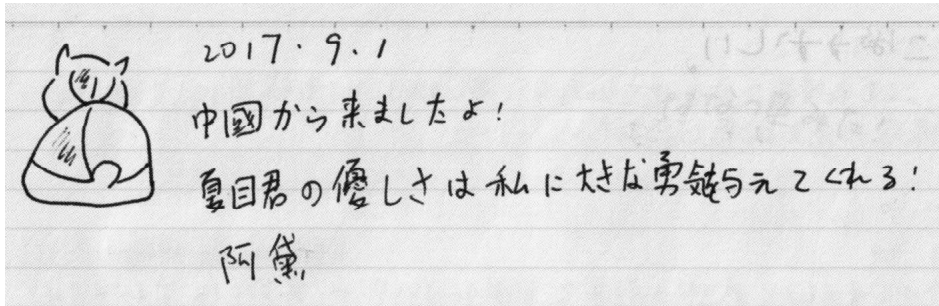 2017.9.1
中國から来ましたよ!
夏目君の優しさは私に大きな勇気を与えてくれる!
阿黛